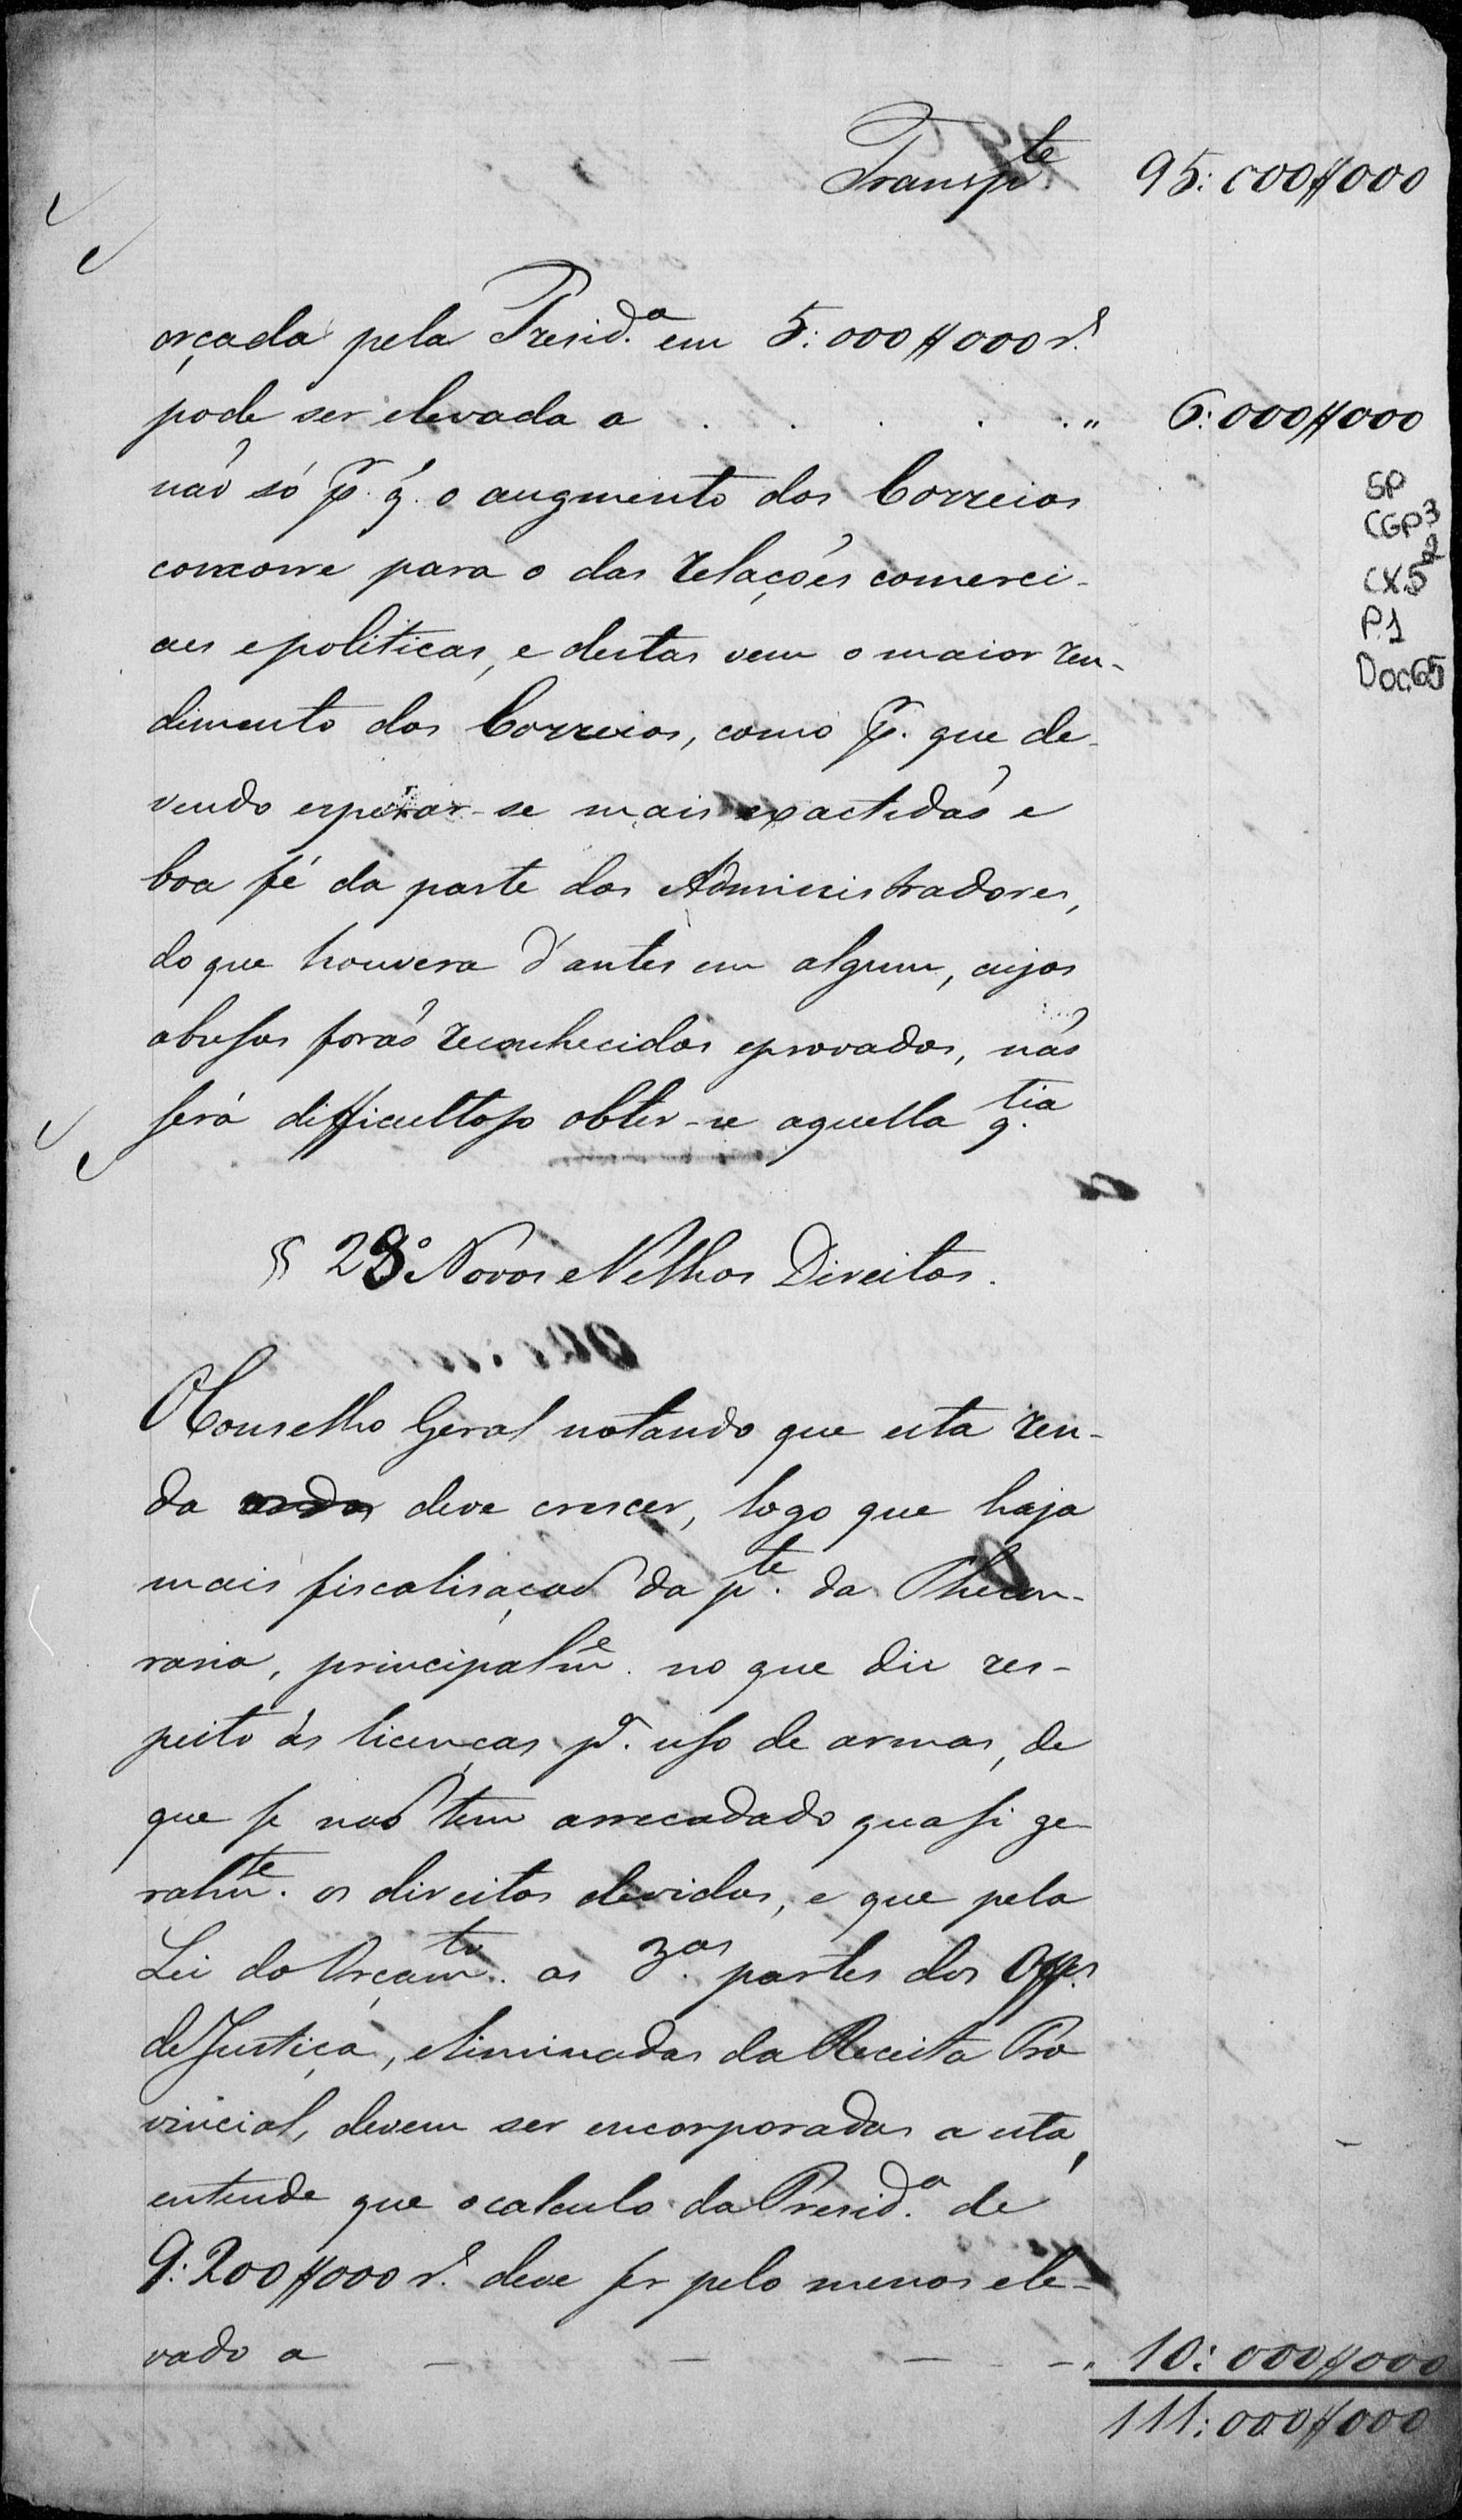 Transp.te 95:000$000
orçada pela Presid.a em 5:000$000 r.s
pode ser elevada a . . . . . " 6:000$000
não só pr. q. o augmento dos Correios
concorre para o das relações comerci-
aes e politicas, e destas vem o maior ren-
dimento dos Correios, como pr. que de-
vendo esperar-se mais exactidão e
boa fé da parte dos Administradores,
do que houvera d'antes em algum, cujos
abusos forão reconhecidos e provados, não
será difficultoso obter-se aquella q.tia
SP
CGP3
CX52
P1
Doc65
§ 28º Novos e Velhos Direitos.
O Conselho Geral notando que esta ren-
da deve crescer, logo que haja
mais fiscalisação da p.te da Thezou-
raria, principalm.e no que diz res-
peito ás licenças p.a uso de armas, de
que se não tem arrecadado quasi ge-
ralm.te os direitos devidos, e que pela
Lei do Orçam.to as 3.as partes dos Off.os
de Justiça, eliminadas da Receita Pro
vincial, devem ser encorporadas a esta,
entende que o calculo da Presid.a de
9:200$000 r.s deve ser pelo menos ele-
vado a - - - - . 10:000$000
111:000$000